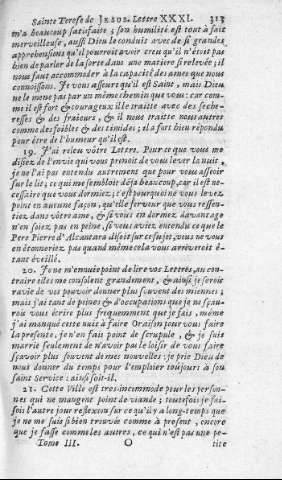 Sainte Terese de JESUS. Lettre XXXI. 313
m'a beaucoup satisfaite ; son humilité est tout à fait
merveilleuse, aussi Dieu le conduit avec de si grandes
apprehensions qu'il pourroit avoir creu qu'il n'étoit pas
bien de parler de la sorte dans une matiere si relevée ; il
nous faut accommoder à la capacité des ames que nous
connoissons. Je vous asseure qu'il est Saint, mais Dieu
ne le mene pas par un même chemin que vous : car com-
me il est fort & courageux il le traitte avec des seche-
resses & des fraieurs, & il nous traitte nous autres
comme des foibles & des timides ; il a fort bien répondu
peur être de l'humeur qu'il est.
19. J'ai releu vôtre Lettre. Pour ce que vous me
disiez de l'envie qui vous prenoit de vous lever la nuit,
je ne l'ai pas entendu autrement que pour vous asseoir
sur le lit ; ce qui me sembloit déja beaucoup, car il est ne-
cessaire que vous dormiez ; c'est pourquoi ne vous levez
point en aucune façon, qu'elle ferveur que vous ressen-
tiez dans vôtre ame, & si vous en dormez davantage
n'en soiez pas en peine, si vous aviez entendu ce que le
Pere Pierre d'Alcantara disoit sur ce sujet, vous ne vous
en étonneriez pas quand même cela vous arriveroit é-
tant éveillé.
20. Je ne m'ennuie point de lire vos Lettres, au con-
traire elles me consolent grandement, & ainsi je serois
ravie de vous pouvoir donner plus souvent des miennes ;
mais j'ai tant de peines & d'occupations que je ne sçau-
rois vous écrire plus frequemment que je fais, même
j'ai manqué cette nuit à faire Oraison pour vous faire
la presente, je n'en fais point de scrupule, & je suis
marrie seulement de n'avoir pas le loisir de vous faire
sçavoir plus souvent de mes nouvelles : je prie Dieu de
nous donner du temps pour l'emploier toujours à son
saint Service : ainsi soit-il.
21. Cette Ville est tres-incommode pour les person-
nes qui ne mangent point de viande ; toutefois je fai-
sois l'autre jour reflexion sur ce qu'il y a long-temps que
je ne me suis si bien trouvée comme à present, encore
que je fasse comme les autres, ce qui n'est pas une pe-
Tome III. O tite